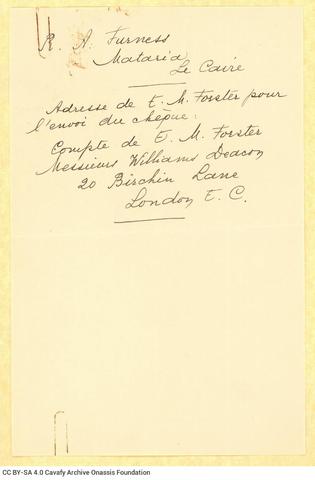 R. A. Furness
Mataria
Le Caire
Adresse de E. M. Forster pour
l'envoi du chèque:
Compte de E. M. Forster
Messieurs Williams Deacon
20 Birchin Lane
London E. C.
CC BY-SA 4.0 Cavafy Archive Onassis Foundation